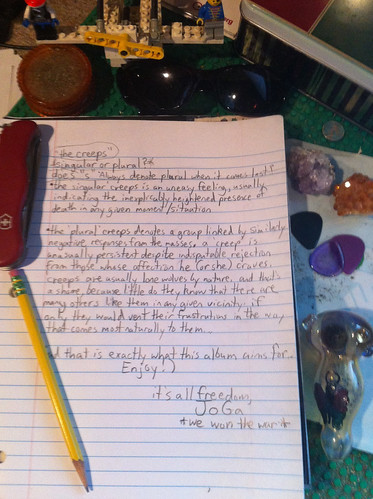 "the creeps"
*singular or plural?*
does "s" always denote plural when it comes last?
•the singular creeps is an uneasy feeling, usually
indicating the inexplicably heightened presence of
death in any given moment/situation
•the plural creeps denotes a group linked by similarly
negative responses from the masses. a creep is
unusually persistent despite indisputable rejection
from those whose affection he (or she) craves.
creeps are usually lone wolves by nature, and that's
a shame, because little do they know that there are
many others like them in any given vicinity. if
only they would vent their frustrations in the way
that comes most naturally to them...
and that is exactly what this album aims for...
Enjoy! :)
it's all freedom,
JoGa
*we won the war*